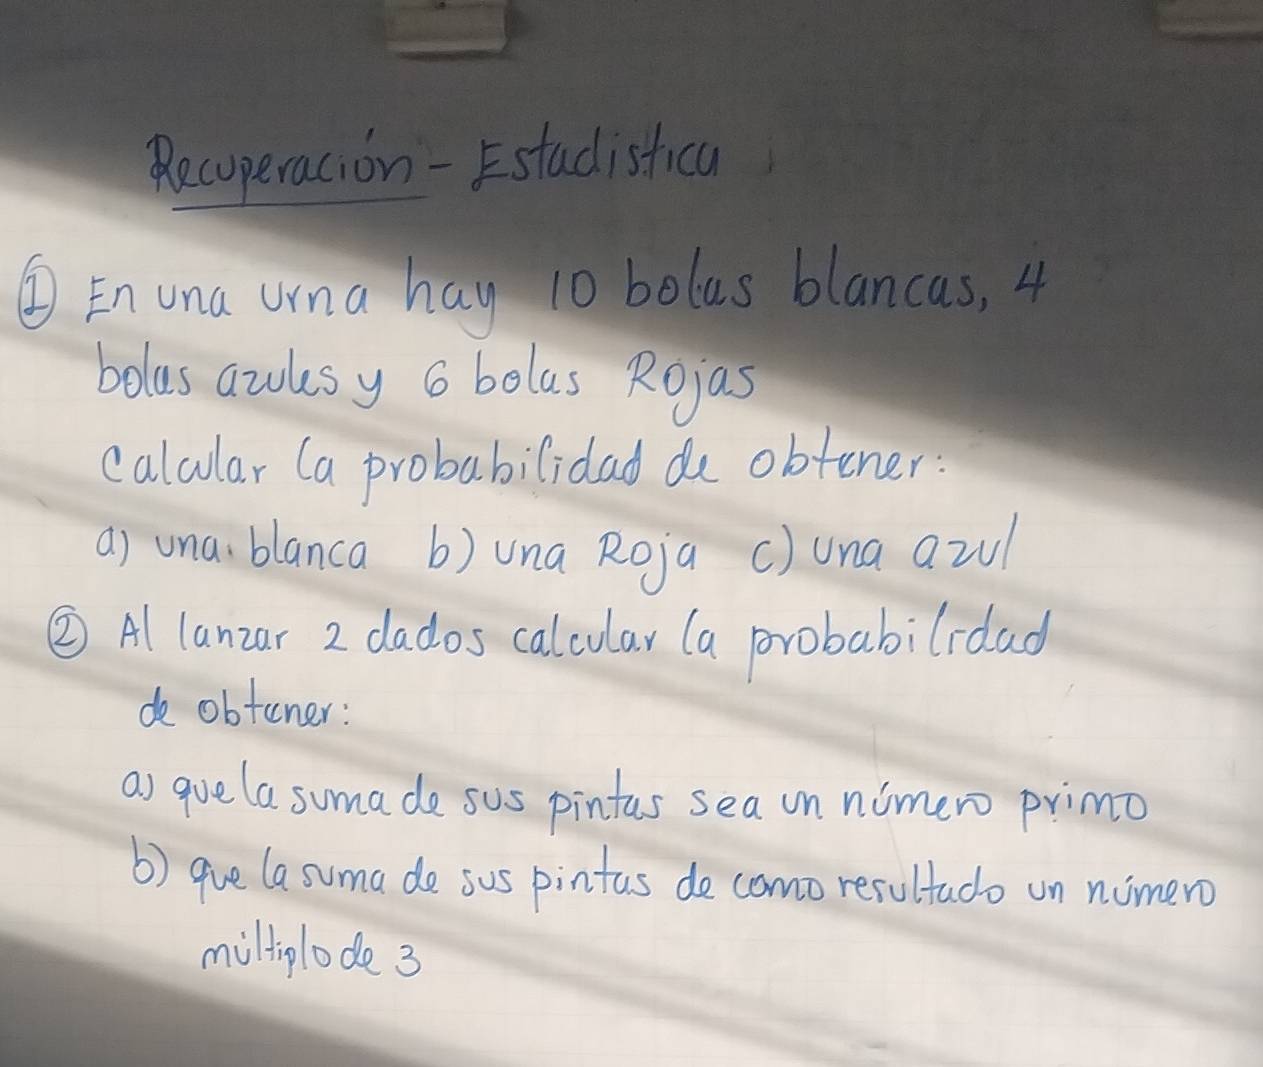 Recuperación - Estadistica
① En una urna hay 10 bolas blancas, 4
bolas azules y 6 bolas Rojas
calcular la probabilidad de obtener:
a) una blanca b) una Roja c) una azul
② Al lanzar 2 dados calcular la probabilidad
de obtener:
a) que la suma de sus pintas sea un número primo
b) que la suma de sus pintas de como resultado un número
múltiplo de 3